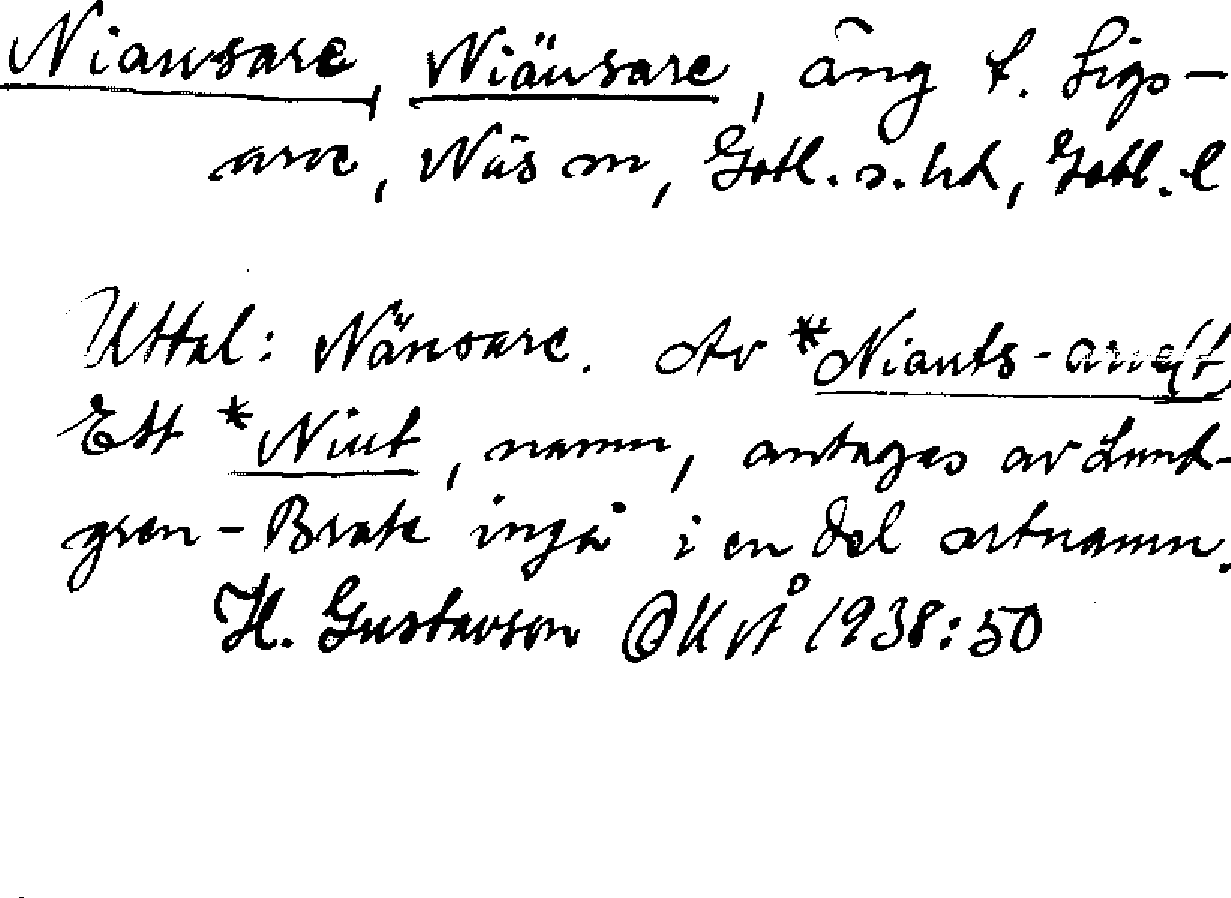 Niausare, Niäusare, äng t. Sigs-
arve, Näs sn, Gotl. s. hd, Gotl. l
Uttal: Näusare. Av *Niauts-arve(t)
Ett *Niut, namn, antages av Lund-
gren-Brate ingå i en del ortnamn.
H. Gustavson OUÅ 1938:50